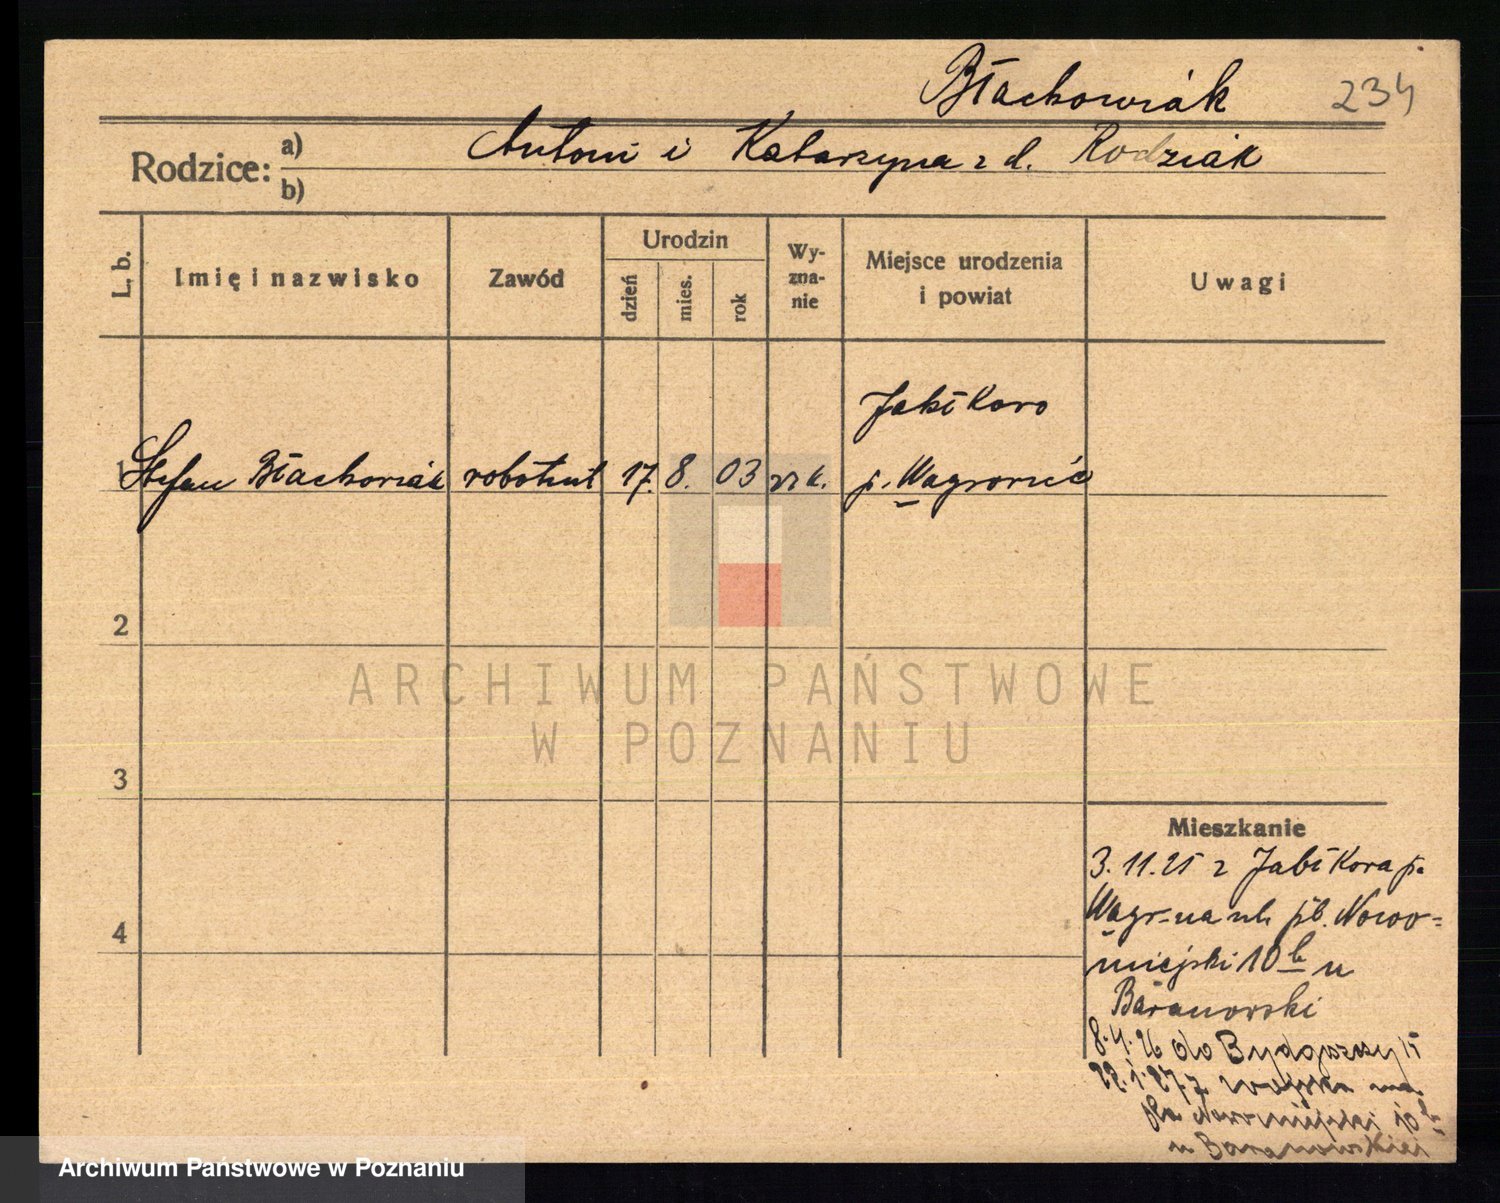 Błachowiak 234
Rodzice: a) Antoni i Katarzyna z d. Rodziak
b)
L. b.
Imię i nazwisko
Zawód
Urodzin
dzień
mies.
rok
Wy-
zna-
nie
Miejsce urodzenia
i powiat
Uwagi
Jabłkowo
1 Stefan Błachowiak robotnik 17. 8. 03 rz k. p. Wągrowiec
2
3
4
ARCHIWUM PAŃSTWOWE
W POZNANIU
Mieszkanie
3.11.25 z Jabłkowa p.
Wągr- na ul. pl. Nowo=
miejski 10 b u
Baranowski
8.4.26 do Bydgoszczy
22.1.27. z wojska na
pl. Nowomiejski 10 b
u Baranowskiej
Archiwum Państwowe w Poznaniu